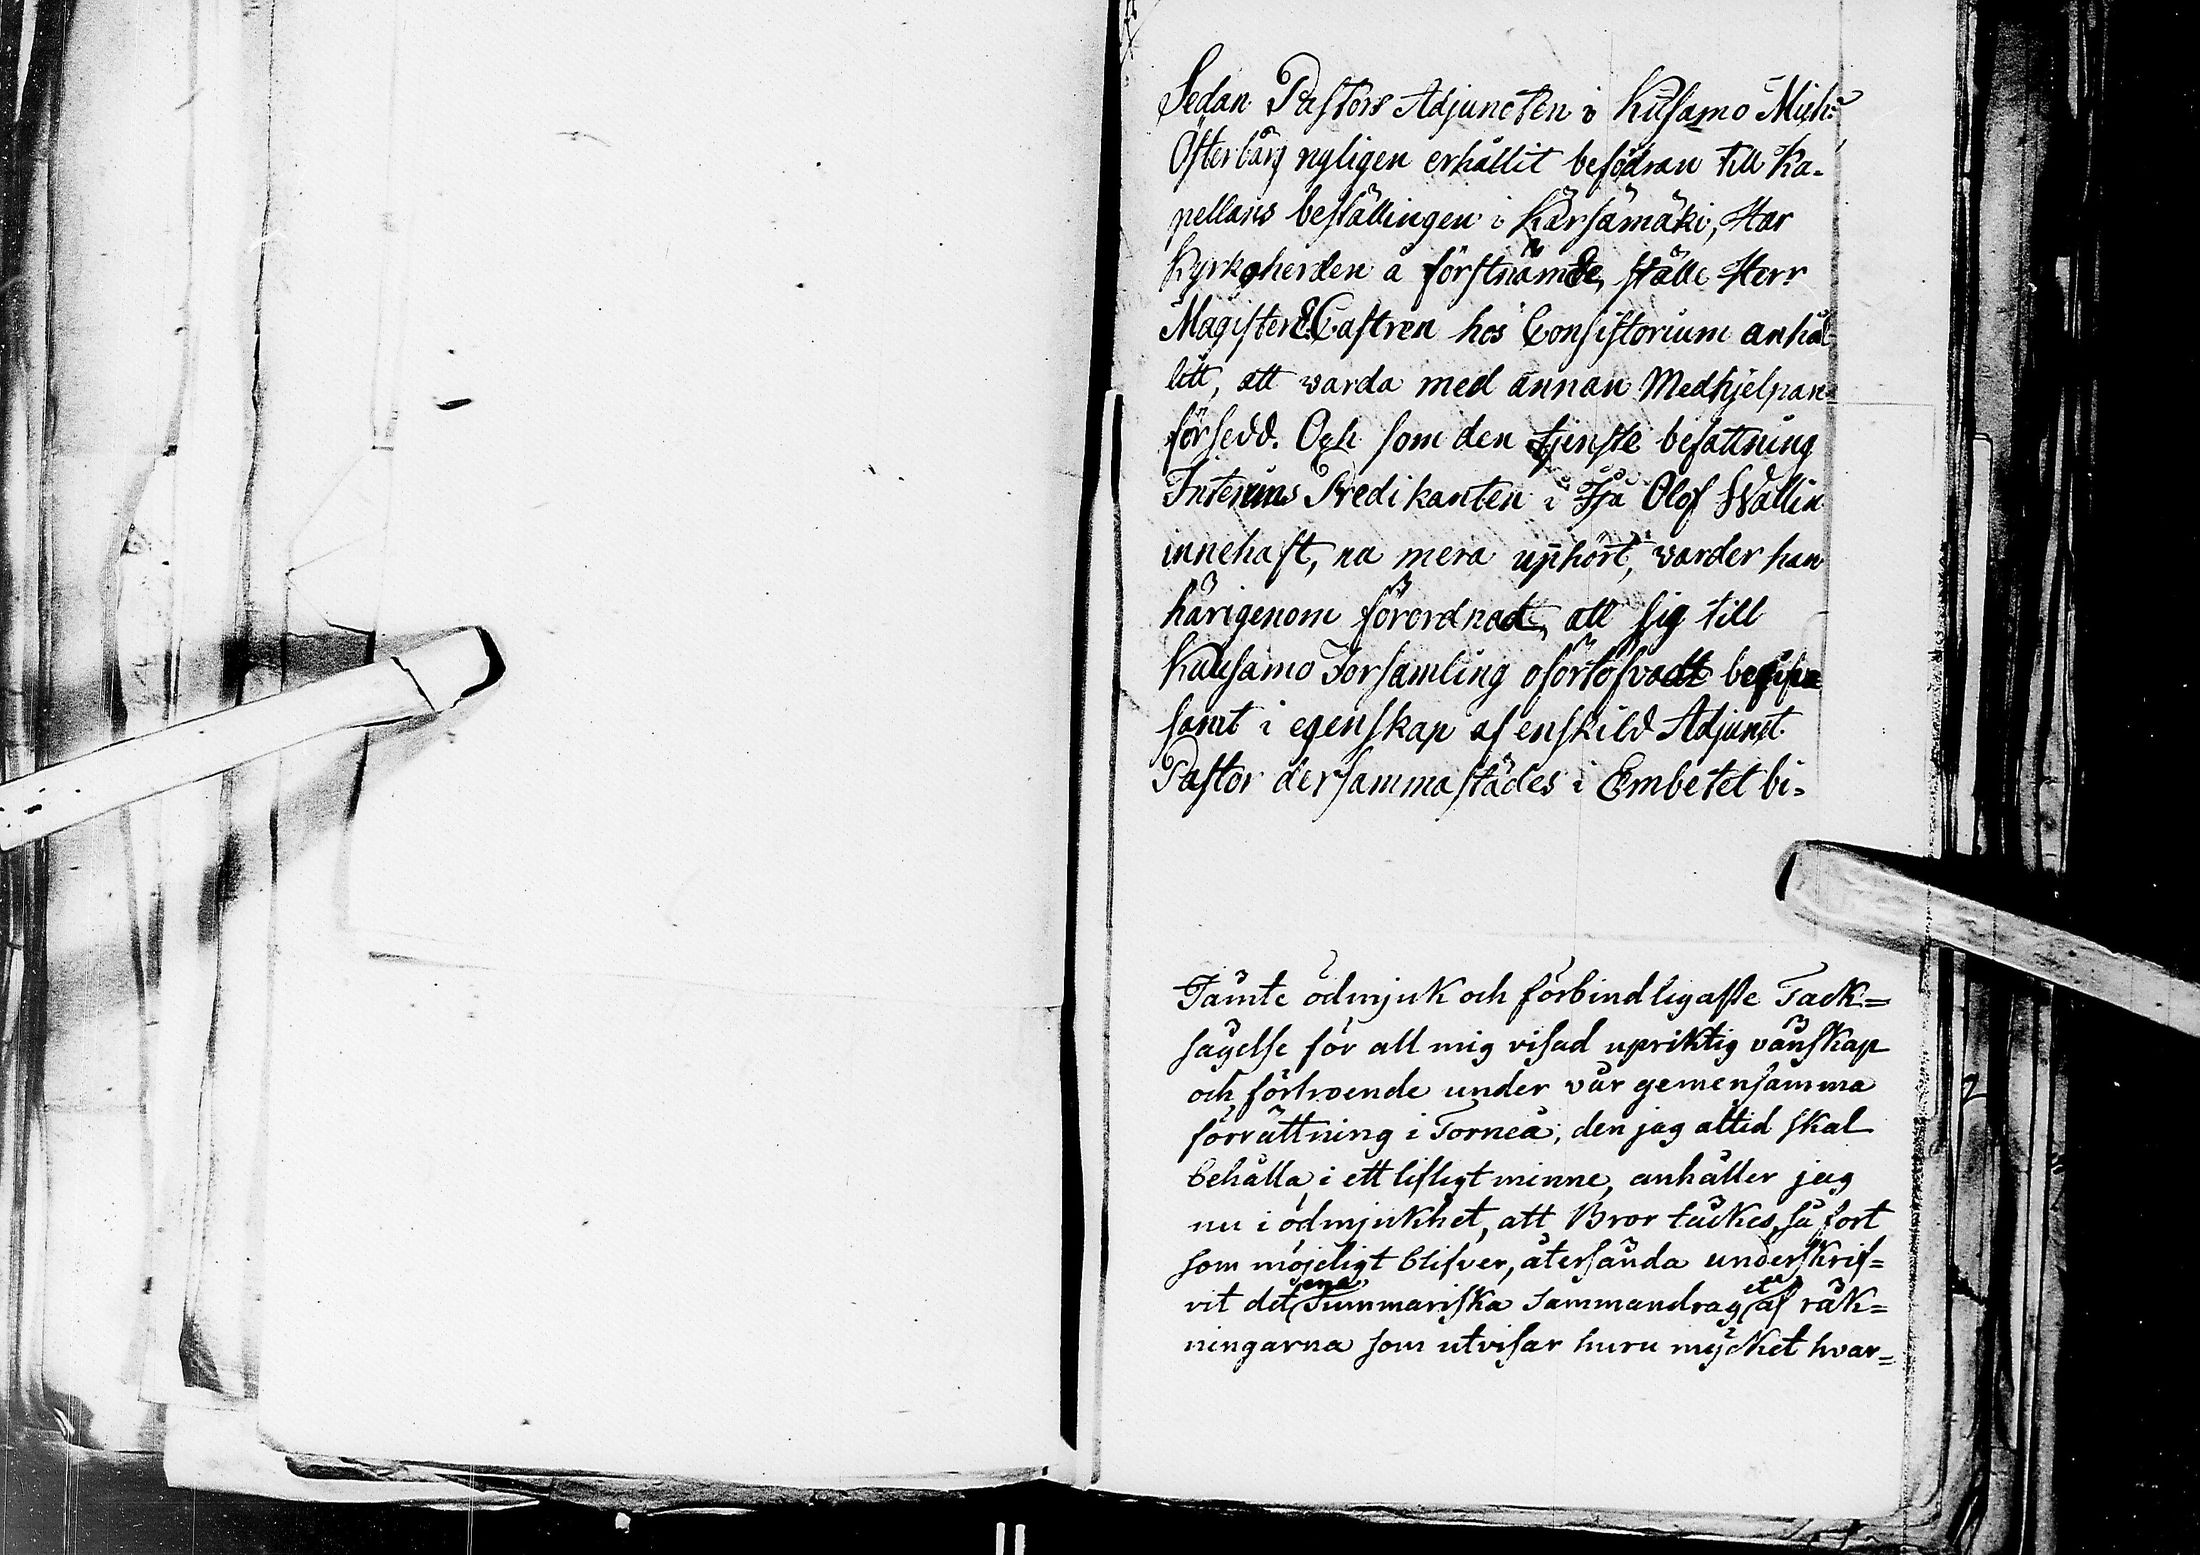 Sedan Pastors Adjuncten i Kusamo Mich:
Österbär nyligen erhållit befodran till Ka-
pellans beställingen i Kärsämäki, Har
Kyrkoherden å förstnämde, ställe Herr
Magistern E. Castren hos Consistorium anhål
litt, att varda med annan Medhjelpare
försedd. Och som den tjenste befattning
Interims Predikanten i Ijå Olof Wallin
innehaft, na mera upphört, varder han
härigenom förordnad, att sig till
Kuusamo Forsamling oförtöfvadt begifva
samt i egenskap af enskild Adjunct
Pastor dersammastädes i Embetet bi-
Jämte ödmjuk och förbindligaste Tack=
sägelse för all mig visad upriktig vänskap
och förtroende under vår gemensamma
förrättning i Torneå, den jag altid skal
behålla i ett lifligt minne, anhåller jag
nu i ödmjukhet, att Bror täckes, så fort
som möjeligt blifver, återsända underskrif=
vit det Summariska Sammandraget af räk=
ningarna som utvisar huru mycket hvar=